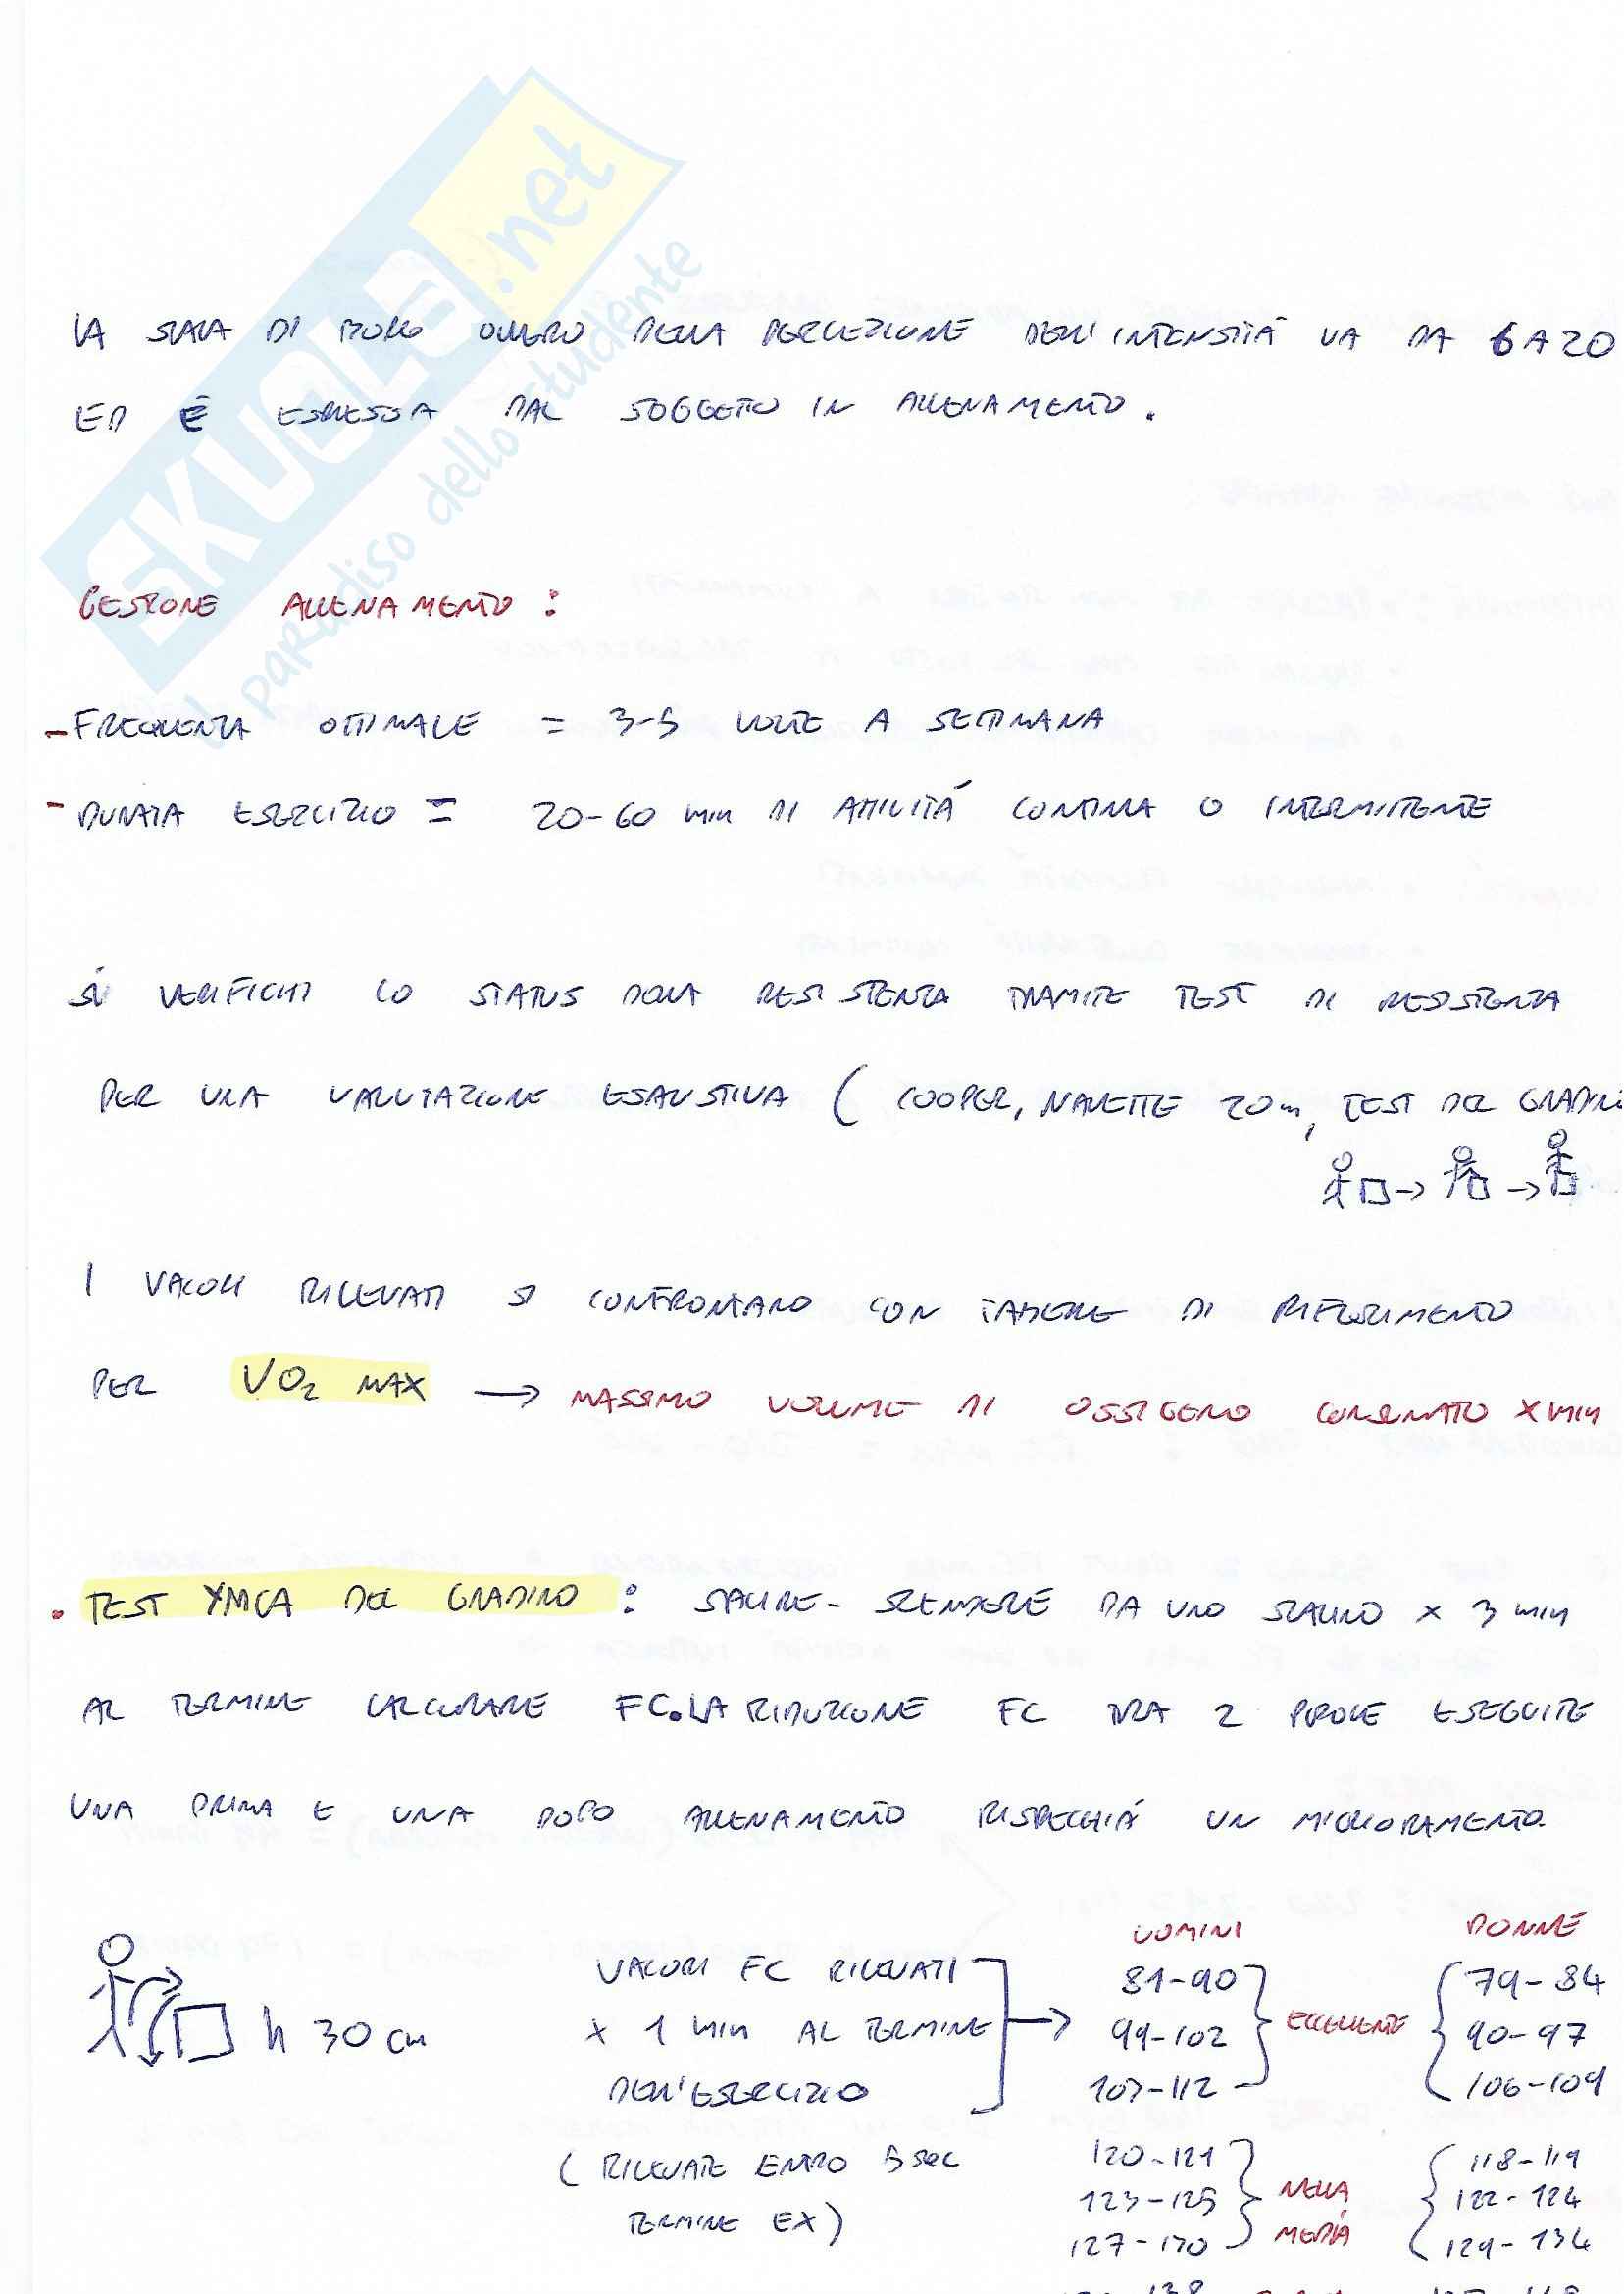 SKUOLA.net
il paradiso dello studente
LA SCALA DI BORG OVVERO DELLA PERCEZIONE DELL'INTENSITÀ VA DA 6 A 20
ED È ESPRESSA DAL SOGGETTO IN ALLENAMENTO.
GESTIONE ALLENAMENTO :
- FREQUENZA OTTIMALE = 3-5 VOLTE A SETTIMANA
- DURATA ESERCIZIO = 20-60 min DI ATTIVITÀ CONTINUA O INTERMITTENTE
SI VERIFICHI LO STATUS DELLA RESISTENZA TRAMITE TEST DI RESISTENZA
PER UNA VALUTAZIONE ESAUSTIVA ( COOPER, NAVETTE 20m, TEST DEL GRADINO
I VALORI RILEVATI SI CONFRONTANO CON TABELLE DI RIFERIMENTO
PER VO₂ MAX → MASSIMO VOLUME DI OSSIGENO CONSUMATO X MIN
• TEST YMCA DEL GRADINO : SALIRE - SCENDERE DA UNO SCALINO X 3 min
AL TERMINE CALCOLARE FC. LA RIDUZIONE FC TRA 2 PROVE ESEGUITE
UNA PRIMA E UNA DOPO ALLENAMENTO RISPECCHIA UN MIGLIORAMENTO.
UOMINI DONNE
VALORI FC RILEVATI → 81-90 79-84
h 30 cm X 1 MIN AL TERMINE 99-102 ECCELLENTE 90-97
DELL'ESERCIZIO 107-112 106-109
( RILEVATE ENTRO 5 sec 120-121 118-119
TERMINE EX) 123-125 NELLA 122-124
127-130 MEDIA 129-134
138